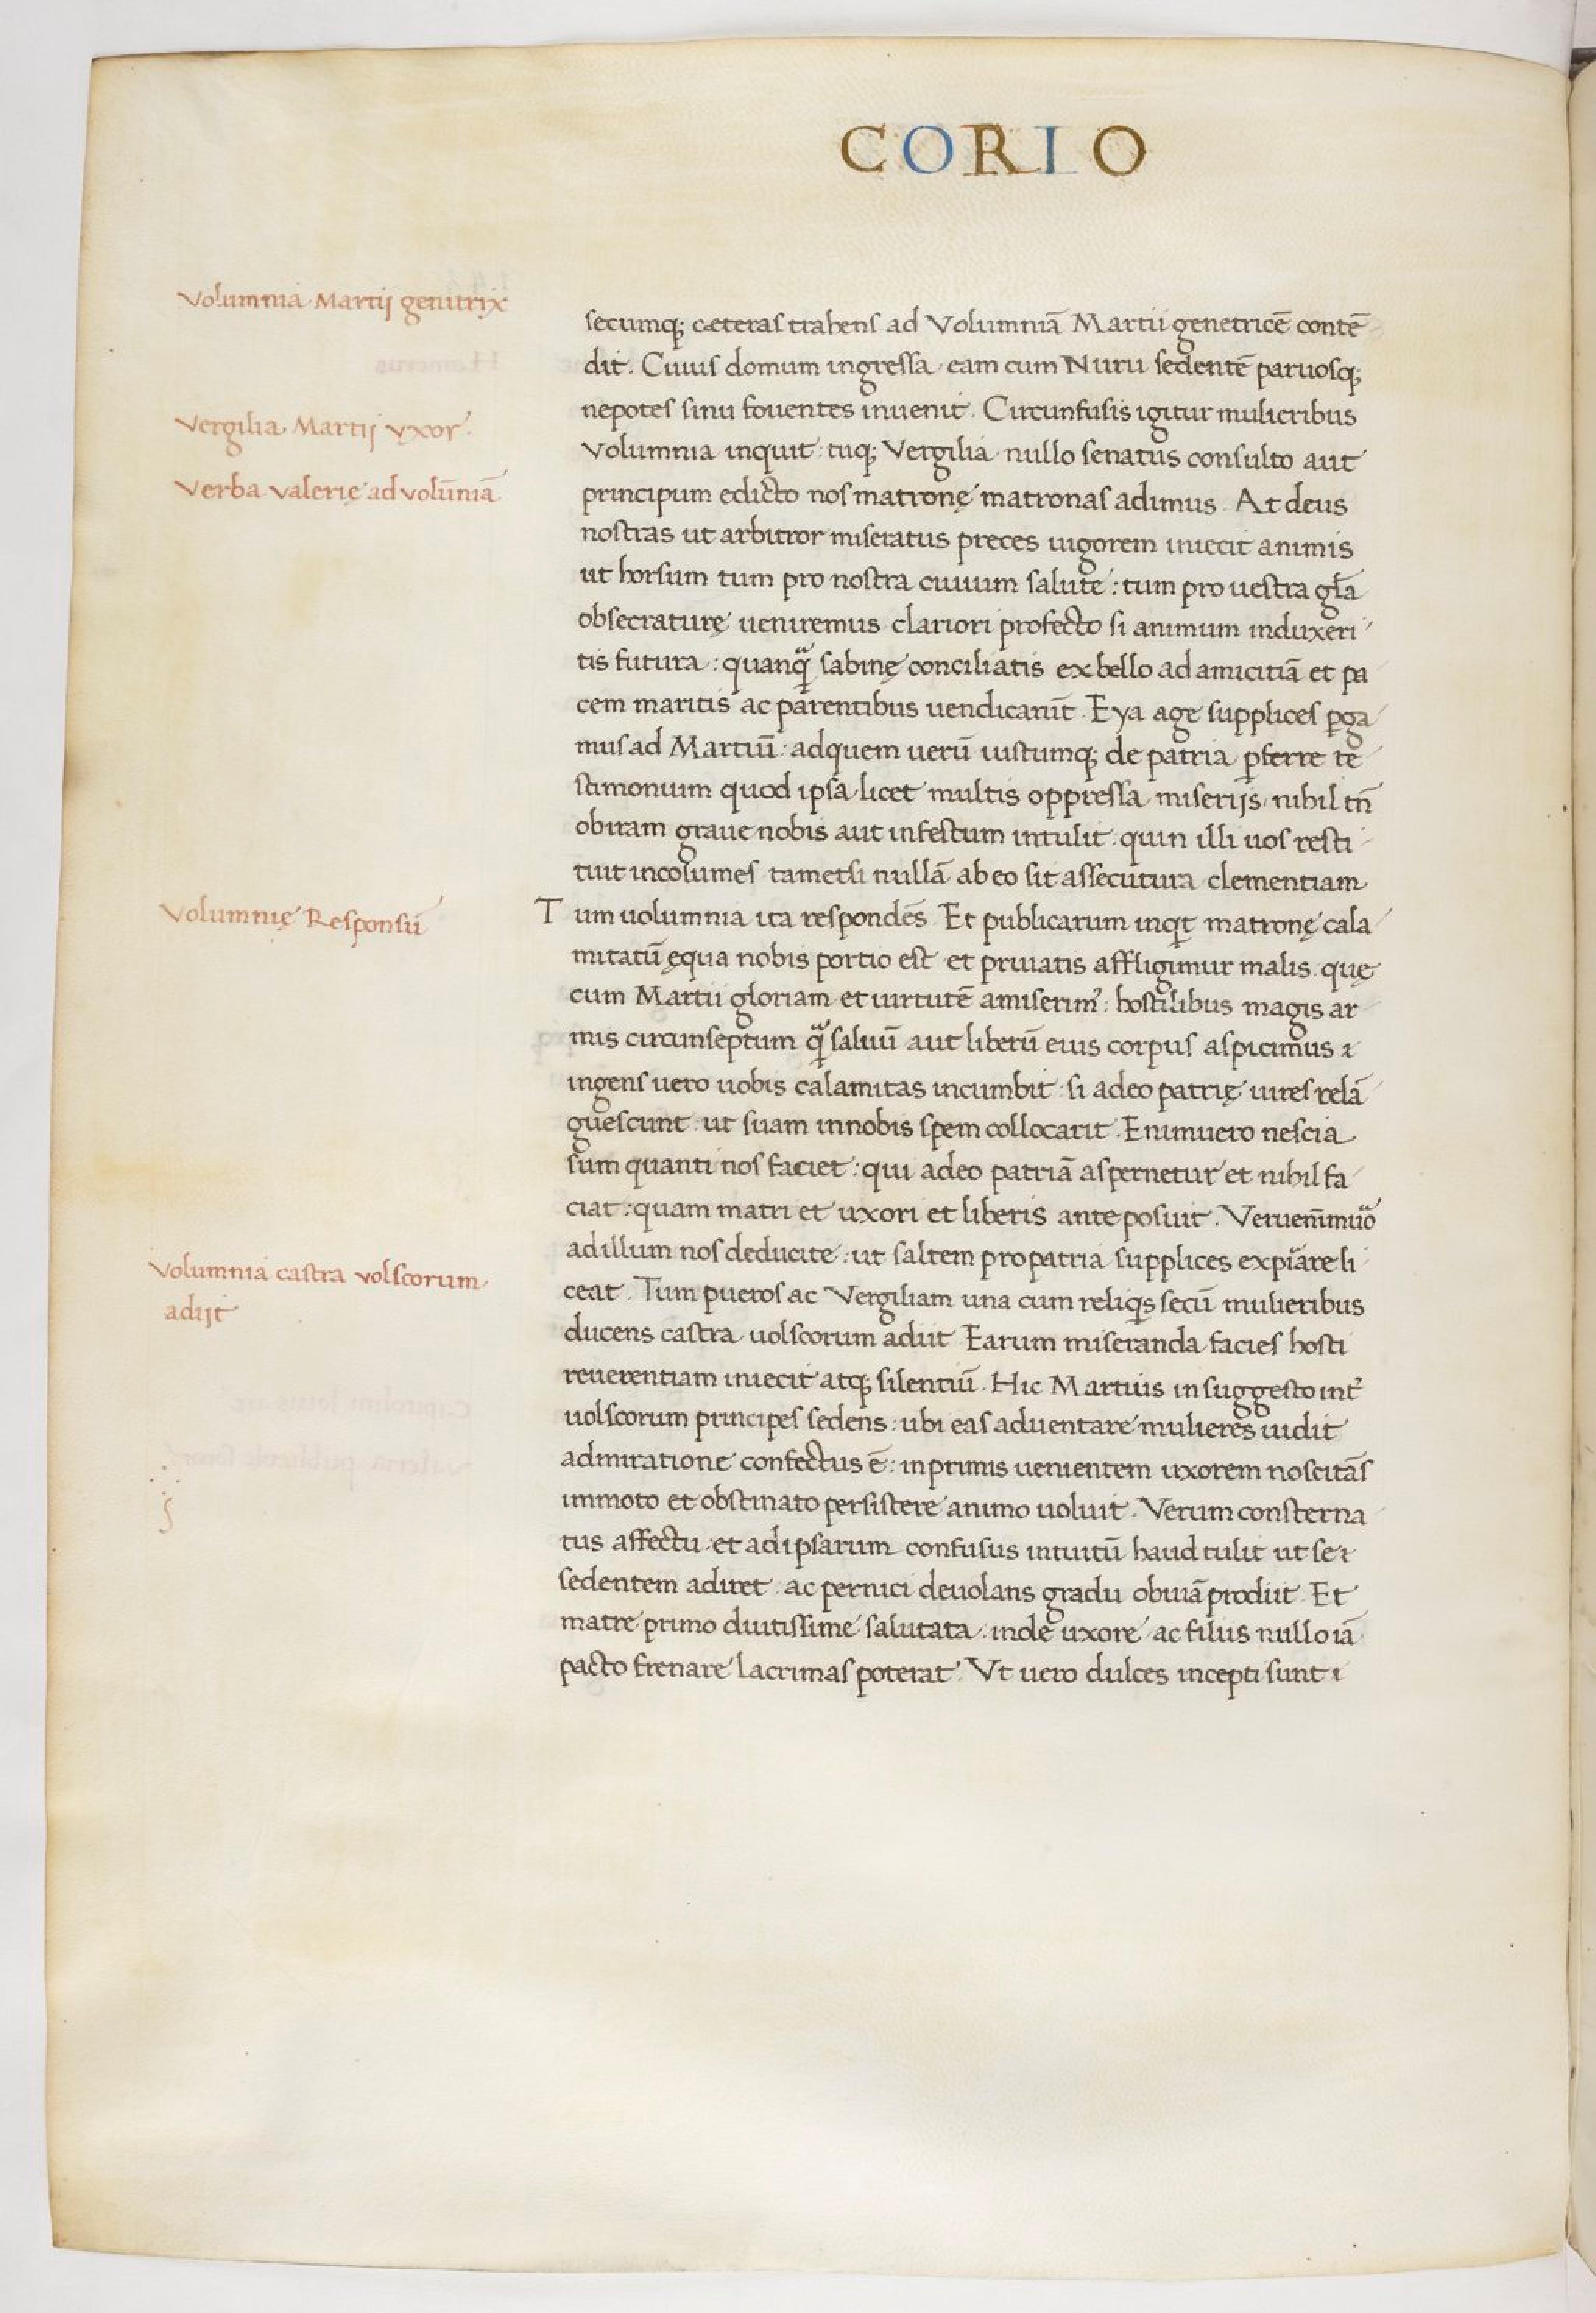 CORIO
Volumnia Martij genitrix
Vergilia Martij vxor.
Verba valerię ad volūniā
Volumnię Responsū
Volumnia castra volscorum
adijt
secumq; cæteras trahens ad Volumniā Martii genetricē contē
dit. Cuius domum ingressa eam cum Nuru sedentē paruosq;
nepotes sinu fouentes inuenit. Circunfusis igitur mulieribus
Volumnia inquit: tuq; Vergilia nullo senatus consulto aut
principum edicto nos matronę matronas adimus. At deus
nostras ut arbitror miseratus preces uigorem iniecit animis
ut horsum tum pro nostra ciuium salute: tum pro uestra glā
obsecraturę ueniremus clariori profecto si animum induxeri
tis futura: quanqᷓ sabinę conciliatis ex bello ad amicitiā et pa
cem maritis ac parentibus uendicarūt. Eya age supplices ꝑga
mus ad Martiū: ad quem uerū iustumq; de patria ꝑferre te
stimonium quod ipsa licet multis oppressa miserijs nihil tn̄
obiram graue nobis aut infestum intulit: quin illi uos resti
tuit incolumes tametsi nullā ab eo sit assecutura clementiam
Tum uolumnia ita respondēs. Et publicarum inqͥt matronę cala
mitatū ęqua nobis portio est et priuatis affligimur malis. quę
cum Martii gloriam et uirtutē amiserimꝰ: hostilibus magis ar
mis circunseptum qᷓ saluū aut liberū eius corpus aspicimus
ingens uero uobis calamitas incumbit: si adeo patrię uires relā
guescunt ut suam in nobis spem collocarit. Enimuero nescia
sum quanti nos faciet: qui adeo patriā aspernetur et nihil fa
ciat: quam matri et uxori et liberis anteposuit. Veruem̄muͦo
ad illum nos deducite: ut saltem pro patria supplices expirare li
ceat. Tum pueros ac Vergiliam una cum reliqͥs secū mulieribus
ducens castra uolscorum adiit Earum miseranda facies hosti
reuerentiam iniecit atq; silentiū. Hic Martius in suggesto int̄
uolscorum principes sedens: ubi eas aduentare mulieres uidit
admiratione confectus ē: inprimis uenientem uxorem noscitās
immoto et obstinato persistere animo uoluit. Verum consterna
tus affectu et ad ipsarum confusus intuitū haud tulit ut se
sedentem adiret ac pernici deuolans gradu obuiā prodiit. Et
matre primo diutissime salutata: inde uxore ac filiis nullo iā
pacto frenare lacrimas poterat. Vt uero dulces incepti sunt